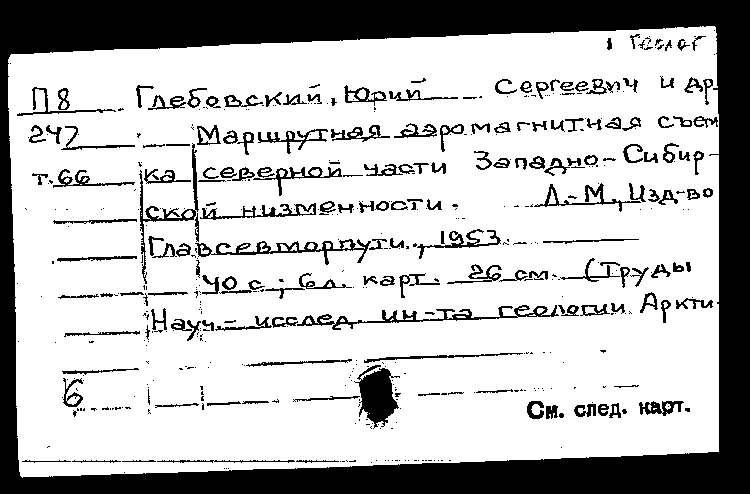 Геолог
П8 Глебовский, Юрий Сергеевич и др.
247 Маршрутная аэромагнитная съем
т.66 ка северной части Западно-Сибир-
ской низменности. Л.-М., Изд-во
Главсевморпути, 1953.
40 с; 6л. карт. 26 см. (Труды
Науч.-исслед. ин-та геологии Аркти-
6
См. след. карт.